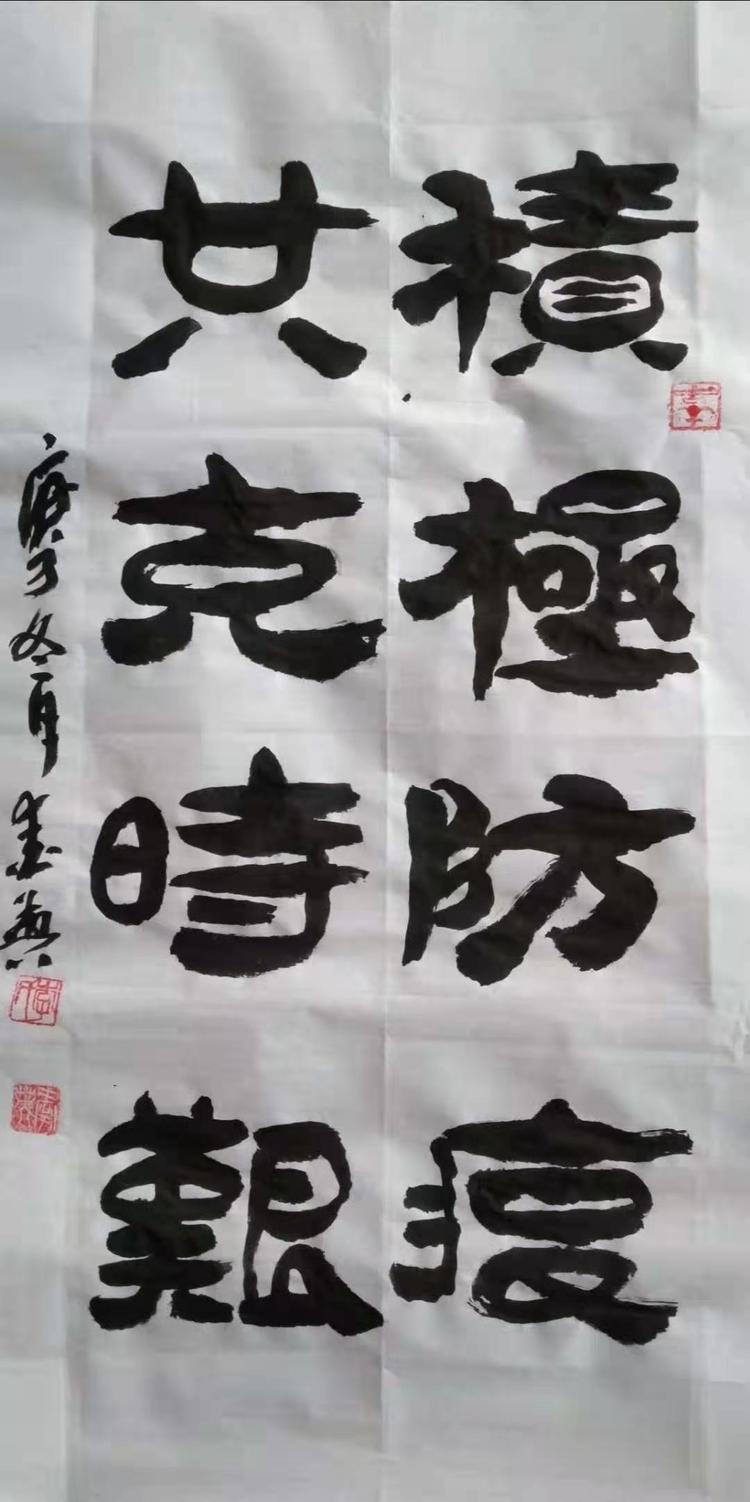 積極防疫
共克時艱
庚子冬月春兴